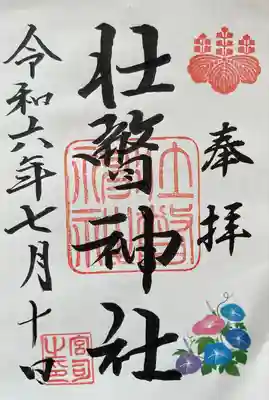 奉拝
壮瞥神社
壮瞥神社
令和六年七月十日
宮司之印